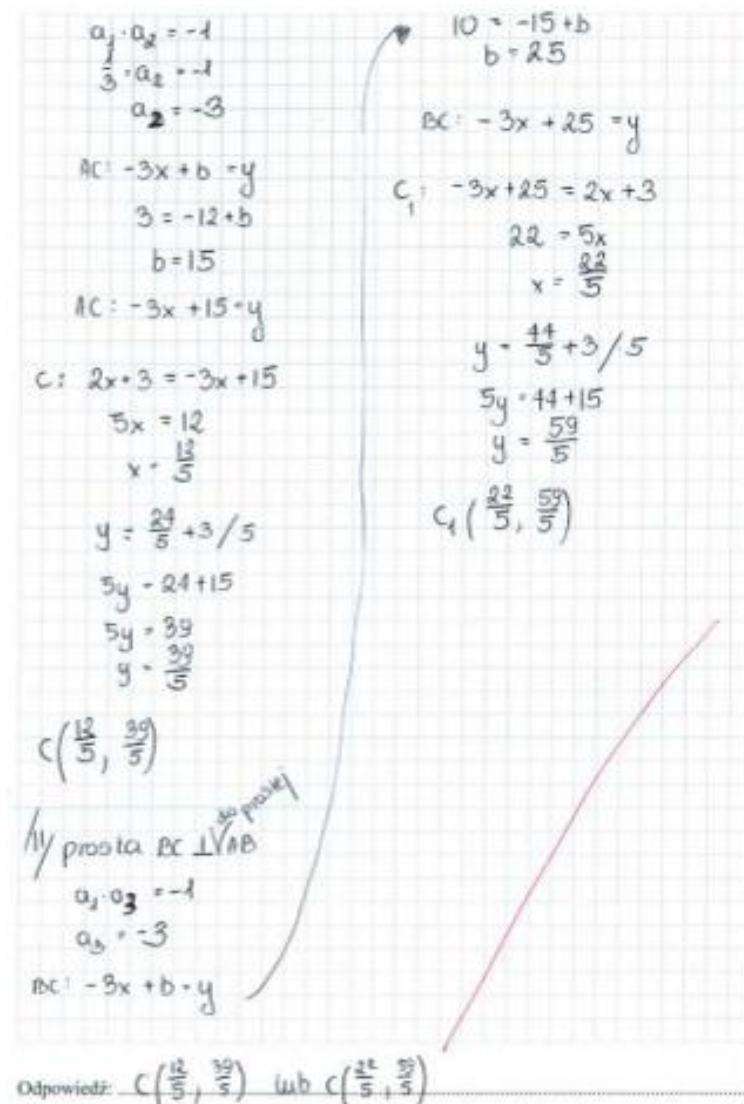 a₁ · a₂ = -1
1/3 · a₂ = -1
a₂ = -3
AC: -3x + b = y
3 = -12 + b
b = 15
AC: -3x + 15 = y
C: 2x + 3 = -3x + 15
5x = 12
x = 12/5
y = 24/5 + 3 / 5
5y = 24 + 15
5y = 39
y = 39/5
C(12/5, 39/5)
II/ prosta BC ⊥ do prostej AB
a₁ · a₃ = -1
a₃ = -3
BC: -3x + b = y
10 = -15 + b
b = 25
BC: -3x + 25 = y
C₁: -3x + 25 = 2x + 3
22 = 5x
x = 22/5
y = 44/5 + 3 / 5
5y = 44 + 15
y = 59/5
C₁(22/5, 59/5)
Odpowiedź: C(12/5, 39/5) lub C(22/5, 59/5)